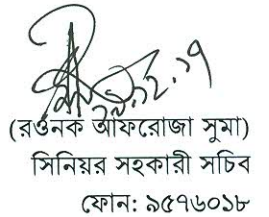 (রওনক আফরোজা সুমা)
সিনিয়র সহকারী সচিব
ফোন: ৯৫৭৬০১৮